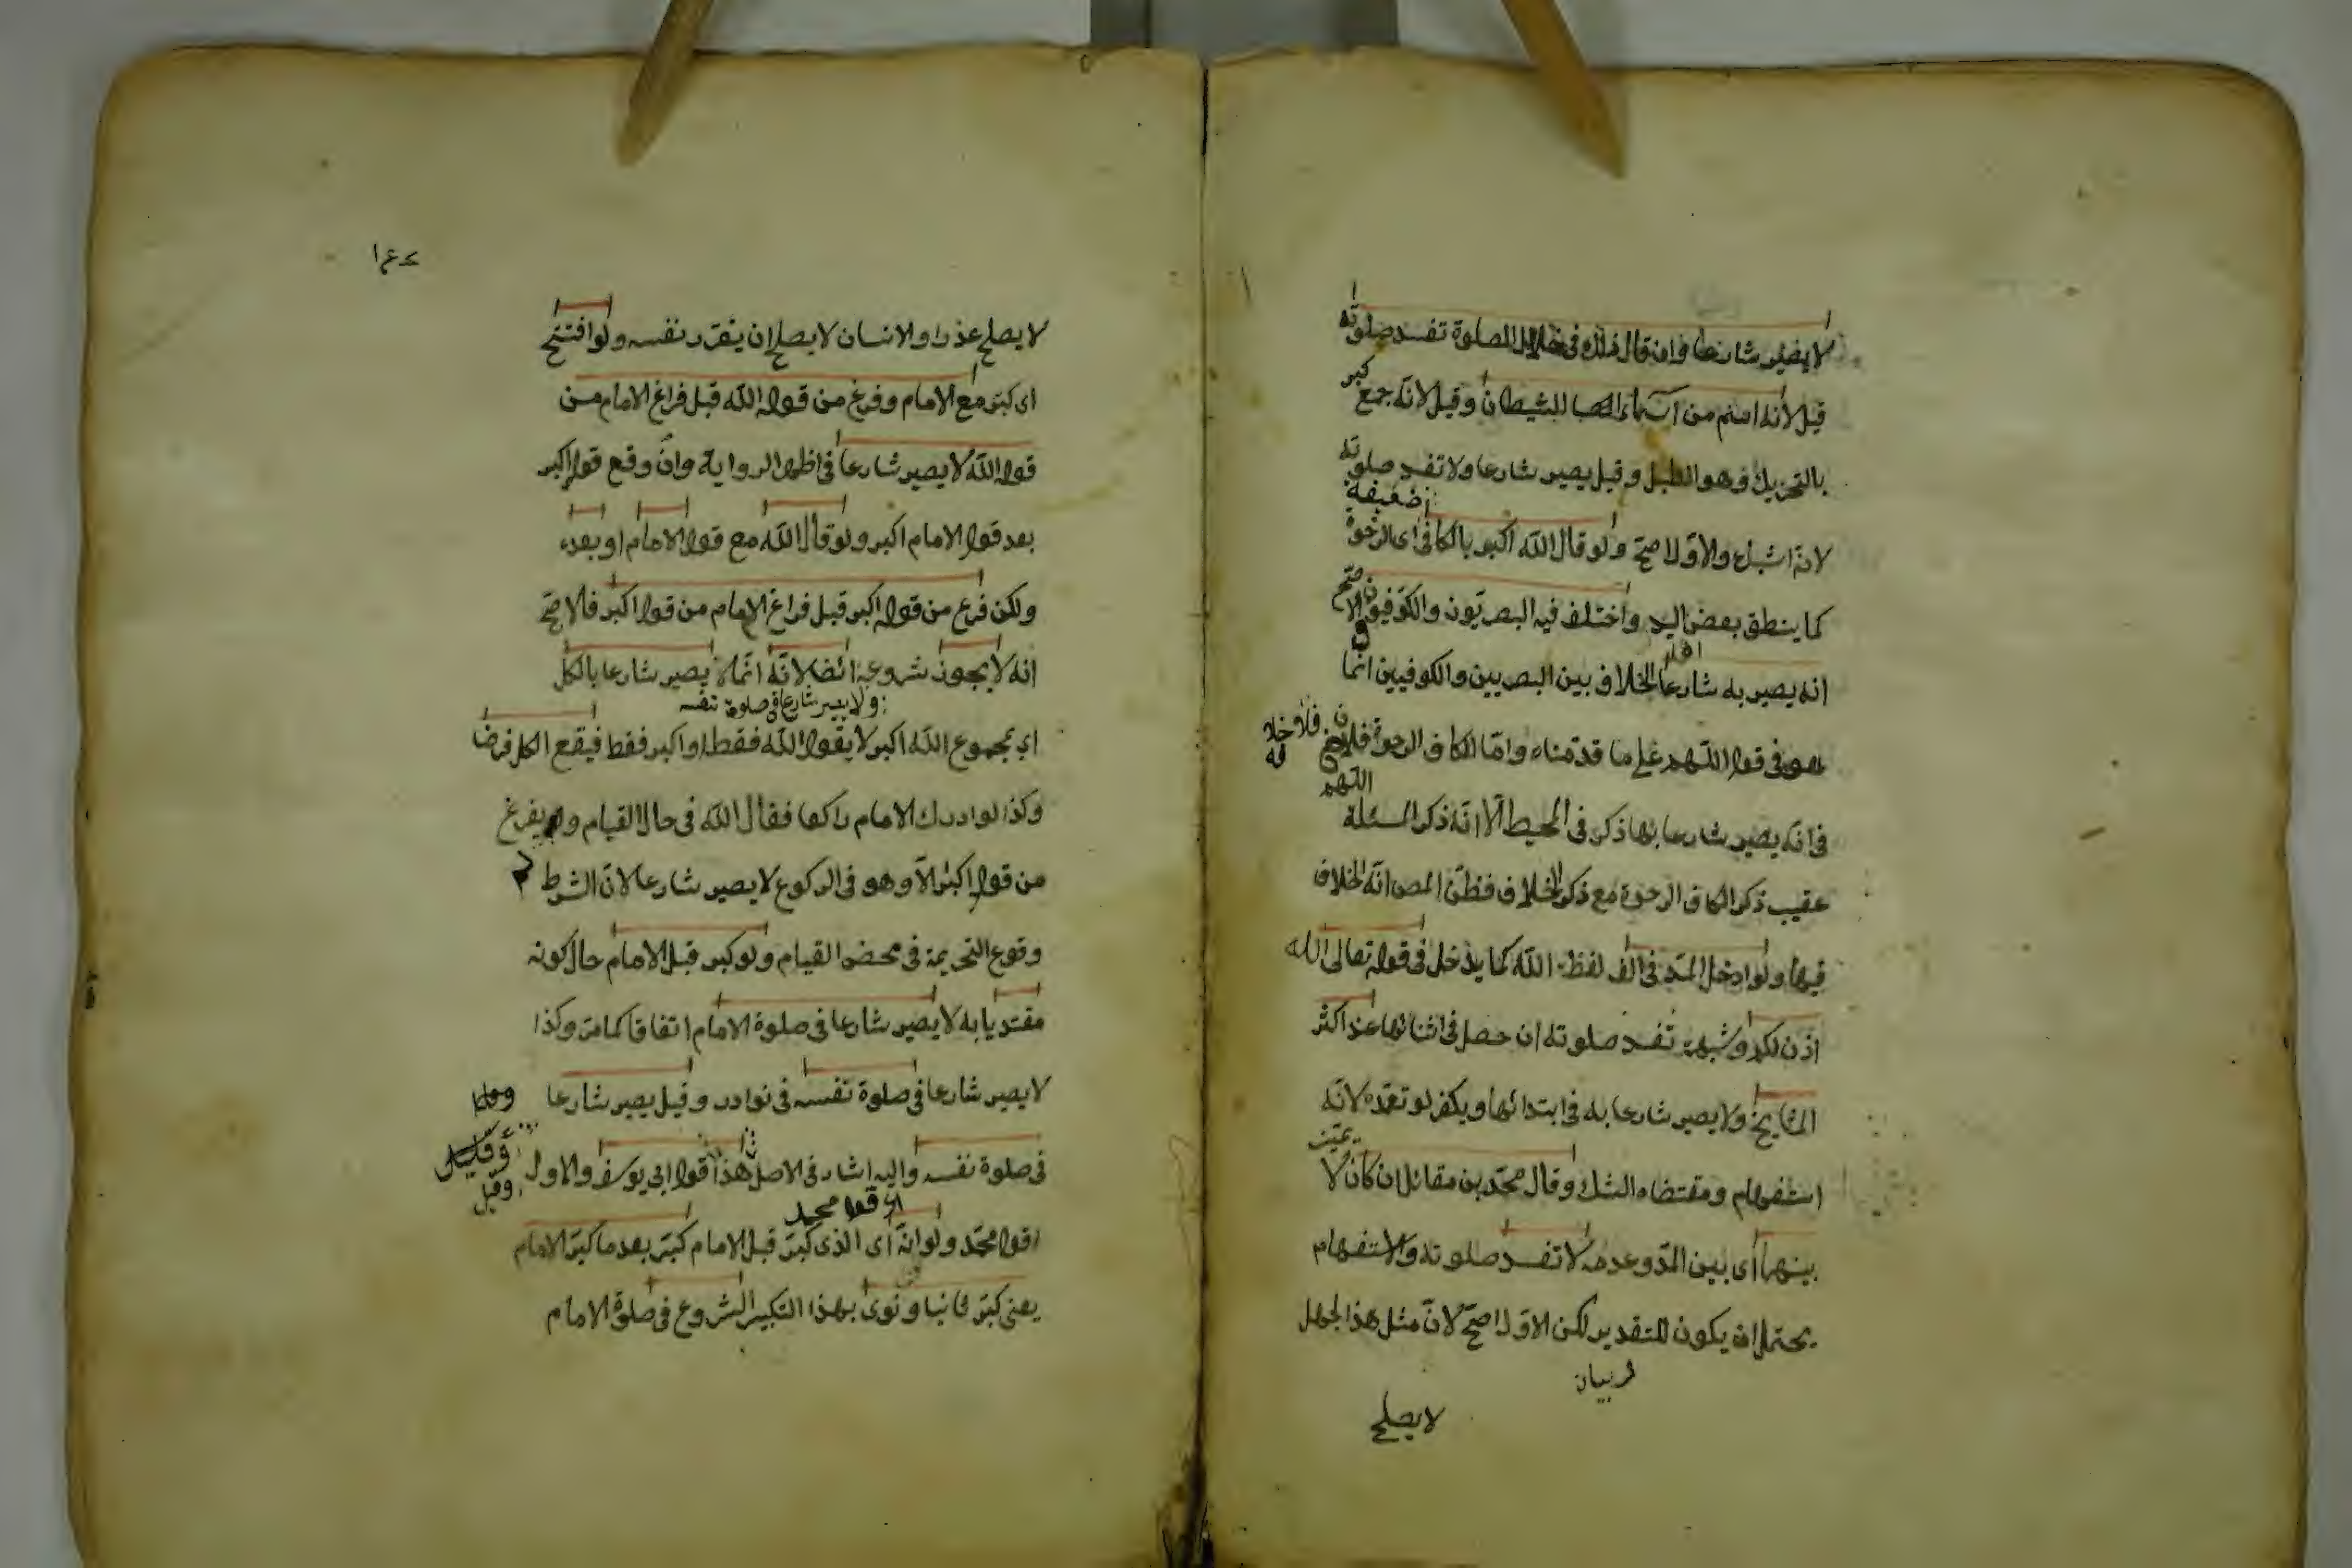 لا يصير شارعا وان قال ذلك في خلال الصلوة تفسد صلوته
قيل لانه اسم من اسماء الشيطان وقيل لانه جمع كبر
بالتحريك وهو الطبل وقيل يصير شارعا ولا تفسد صلوته
لانه اشباع والاول اصح ولو قال الله اكبر بالكاف اى الرخوة
ضعيفة
كما ينطق بعض اليد واختلف فيه البصريون والكوفيون الاصح
انه يصير به شارعا الخلاف بين البصريين والكوفيين انما
هو فى قوله اللهم على ما قدمناه واما الكاف الرخوة فلا
فلا خلاف
اللهم
فى انه يصير شارعا بها ذكره فى المحيط الا انه ذكر المسئلة
عقيب ذكر الكاف الرخوة مع ذكر الخلاف فظن المص انه الخلاف
فيها ولو ادخل المد فى الف لفظة الله كما يدخل فى قوله تعالى الله
اذن لكم وشبهه تفسد صلوته ان حصل فى اثنائها عند اكثر
المشايخ ولا يصير شارعا به فى ابتدائها ويكفر لو تعمده لانه
استفهام ومقتضاه الشك وقال محمد بن مقاتل ان كان لا
يميز
بينهما اى بين المد وعدمه لا تفسد صلوته والاستفهام
يحتمل ان يكون للتقدير لكن الاول اصح لان مثل هذا الجهل
بيان
لا يصلح
لا يصلح عذرا والانسان لا يصلح ان يقرر نفسه ولو افتتح
اى كبر مع الامام وفرغ من قوله الله قبل فراغ الامام من
قوله الله لا يصير شارعا فى اظهر الرواية وان وقع قوله اكبر
بعد قول الامام اكبر ولو قال الله مع قول الامام او بعده
ولكن فرغ من قوله اكبر قبل فراغ الامام من قوله اكبر فالاصح
انه لا يجوز شروعه ايضا لانه انما لا يصير شارعا بالكل
ولا يصير شارعا فى صلوة نفسه
اى بمجموع الله اكبر لا بقوله الله فقط او اكبر فقط فيقع الكل فرضا
وكذا لو ادرك الامام راكعا فقال الله فى حال القيام ولم يفرغ
من قوله اكبر الا وهو فى الركوع لا يصير شارعا لان الشرط
وقوع التحريمة فى محض القيام ولو كبر قبل الامام حال كونه
مقتديا به لا يصير شارعا فى صلوة الامام اتفاقا كما مر وكذا
لا يصير شارعا فى صلوة نفسه فى نوادر وقيل يصير شارعا
فى صلوة نفسه واليه اشار فى الاصل هذا قول ابى يوسف والاول
وقيل
اى قول محمد
قول محمد ولو انه اى الذى كبر قبل الامام كبر بعد ما كبر الامام
يعنى كبر ثانيا ونوى بهذا التكبير الشروع فى صلوة الامام